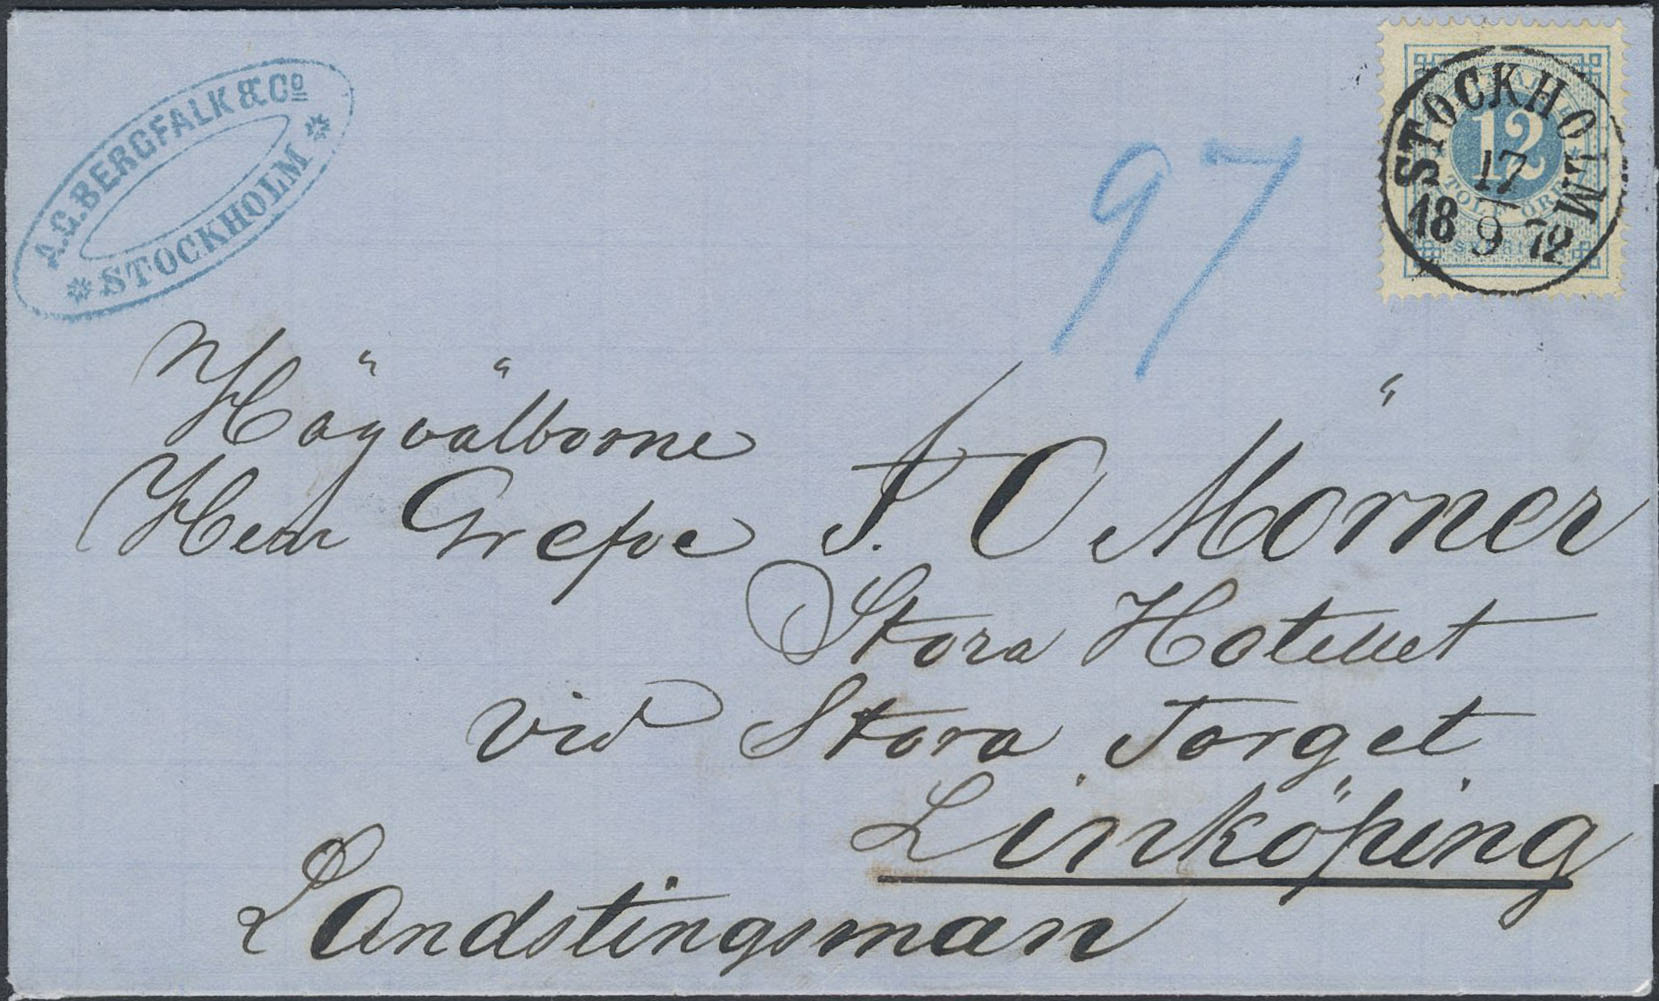 A.G. BERGFALK & Co
STOCKHOLM
97
12
TOLF ÖRE
STOCKHOLM
17
18 9 72
Högvälborne
Herr Grefve F. O Mörner
Stora Hotellet
vid Stora Torget
Linköping
Landstingsman